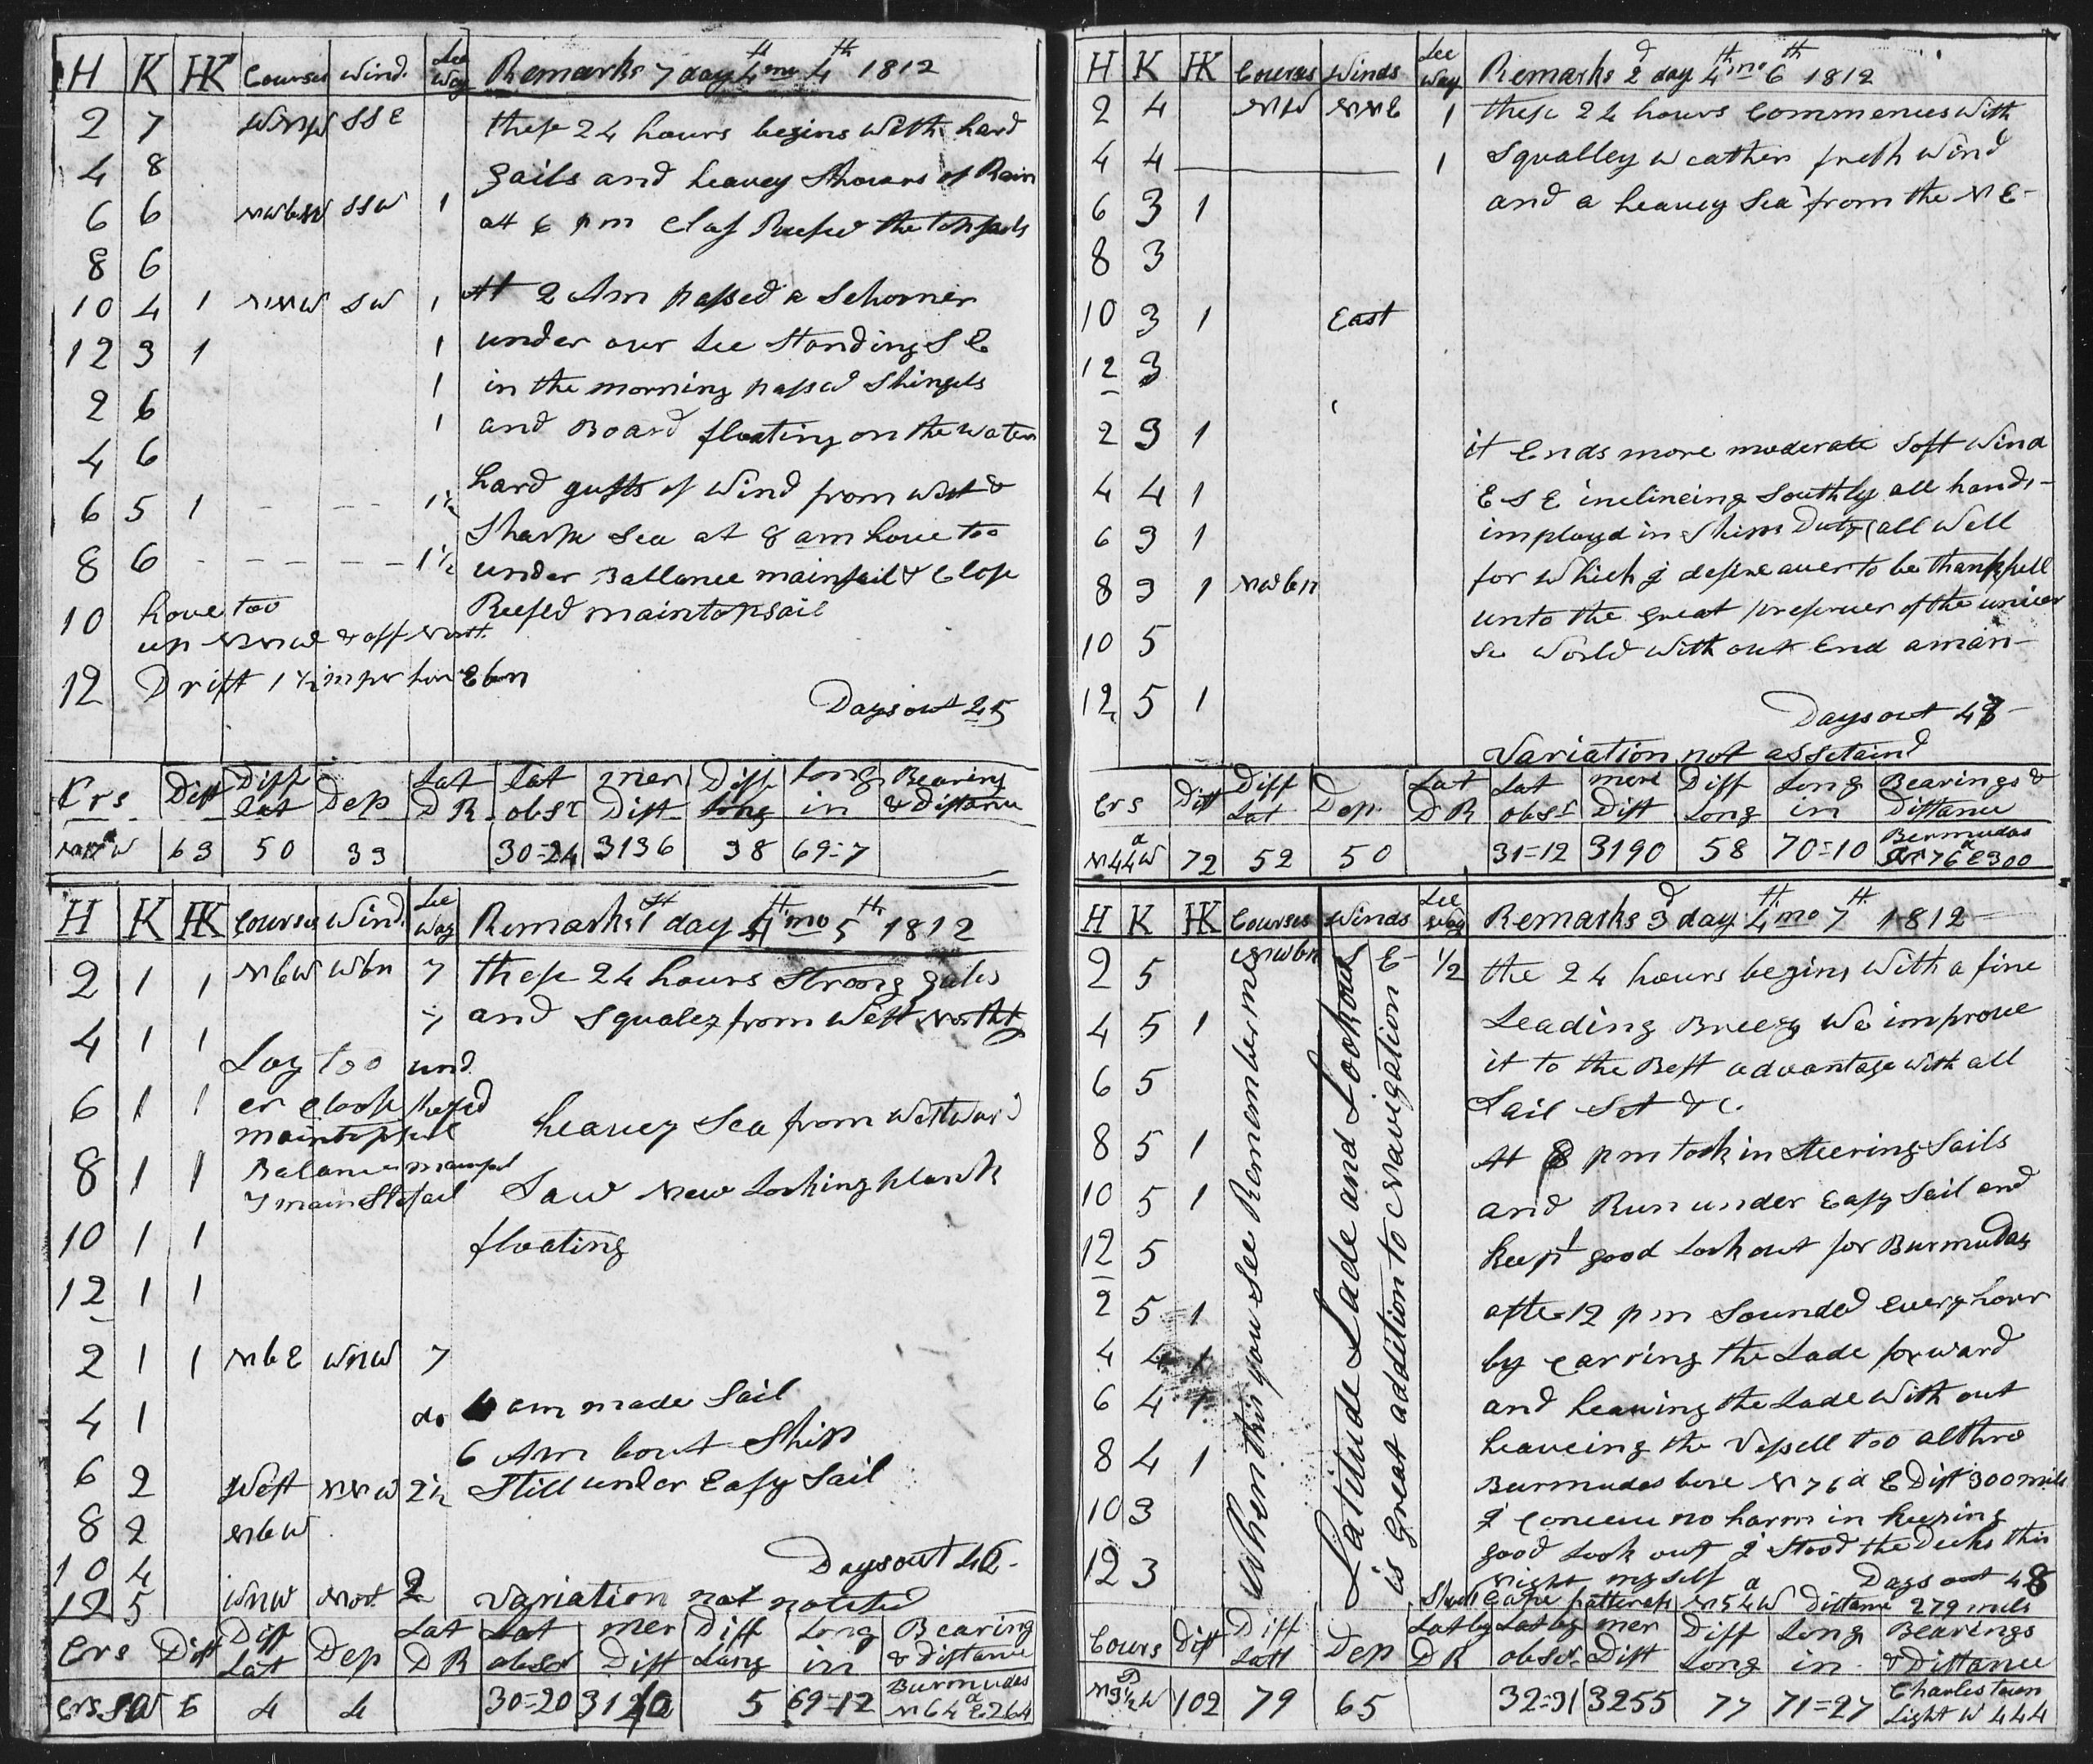 H K HK Courses Wind. Lee Way Remarks 7 day 4th mo 4th 1812
2 7 WNW SSE these 24 hours begins with hard
4 8 gails and heavey Showers of Rain
6 6 NWbW SSW 1 att 6 pm Clos Reefed the topsails
8 6
10 4 1 NNW SW 1 At 2 Am passed a Schorner
12 3 1 1 under our Lee Standing S E
2 6 1 in the morning passed Shingels
4 6 1 and Board floating on the Waters
6 5 1 - - - 1½ hard gusts of Wind from West &
8 6 - - - - - 1½ Sharpe Sea at 8 am hove too
10 hove too under Ballance mainsail & Close
up NNW & off North Reefed maintopsail
12 Drift 1 ½ m per hour Ebn
Days out 45
Crs Dist Diff lat Dep Lat DR lat obsr mer Dist Diff Long Long in Bearing & Distance
W 63 50 33 30=24 3136 38 69=7
H K HK Courses Wind. Lee Way Remarks 1st day 4th mo 5th 1812
2 1 1 NbW Wbn 7 these 24 hours Strong gales
4 1 1 7 and Squaley from West Northt
Lay too und
6 1 1 er close Refed heavey Sea from Westward
maintopsail
8 1 1 Balance mainsail
& main Stasail Saw New Looking plank
10 1 1 floating
12 1 1
2 1 1 NbE WNW 7
4 1 do 4 am made Sail
6 Am bout Ship
6 2 West NNW 2½ Still under Easy Sail
8 2 NbW
10 4 Days out 46-
12 5 WNW Not. 2 Variation not noticed
Crs Dist Diff Lat Dep Lat DR Lat obser mer Dist Diff Long Long in Bearing & Distance
Crs SW 5 4 4 30=20 3140 5 69=12 Burmudas N64d E 264
H K HK Courses Winds Lee Way Remarks 2d day 4th mo 6th 1812
2 4 NW NNE 1 these 24 hours Commences With
4 4 1 Squalley weather fresh Wind
6 3 1 and a heavey Sea from the N E-
8 3
10 3 1 East
12 3
2 3 1 it Ends more moderate Soft Wind
4 4 1 E S E inclineing Southly all hands-
6 3 1 imployd in Ships Duty (all Well
8 3 1 NWbn for Which I desire aver to be thankfull
10 5 unto the great preserver of the univer
se World with out End aman-
12 5 1
Days out 47-
Variation not assetaind
Crs Dist Diff Lat Dep. Lat DR Lat obsr mere Dist Diff Long Long in Bearings & Distance
N44dW 72 52 50 31=12 3190 58 70=10 Bermudas N76d E300
H K HK Courses Winds Lee Way Remarks 3d day 4th mo 7th 1812-
2 5 NWbn S E- ½ the 24 hours begins With a fine
4 5 1 Leading Breezy We improve
6 5 it to the Best advantage with all
Sail Set &c.
8 5 1 At 8 pm took in Steering Sails
10 5 1 and Run under Easy Sail and
12 5 keept good Lookout for Burmudas
2 5 1 after 12 pm Sounded Every hour
4 4 1 by carring the Lade forward
6 4 1 and heaving the Lade With out
8 4 1 heaveing the Vessell too altho
Burmudas bore N76d E Dist 300 mils
10 3 I conceive no harm in keeping
good Look out I Stood the Decks this
12 3 Night myself Days out 48
Cape hatterass N54dW Distance 279 mils
When this you See Remember me
Latitude Lade and Lookout
is Great addition to Navigation
Cours Dist Diff Latt Dep Lat by DR Lat by obsr. mer Dist Diff Long Long in Bearings & Distance
102 79 65 32=31 3255 77 71=27 Charlestown Light W 444